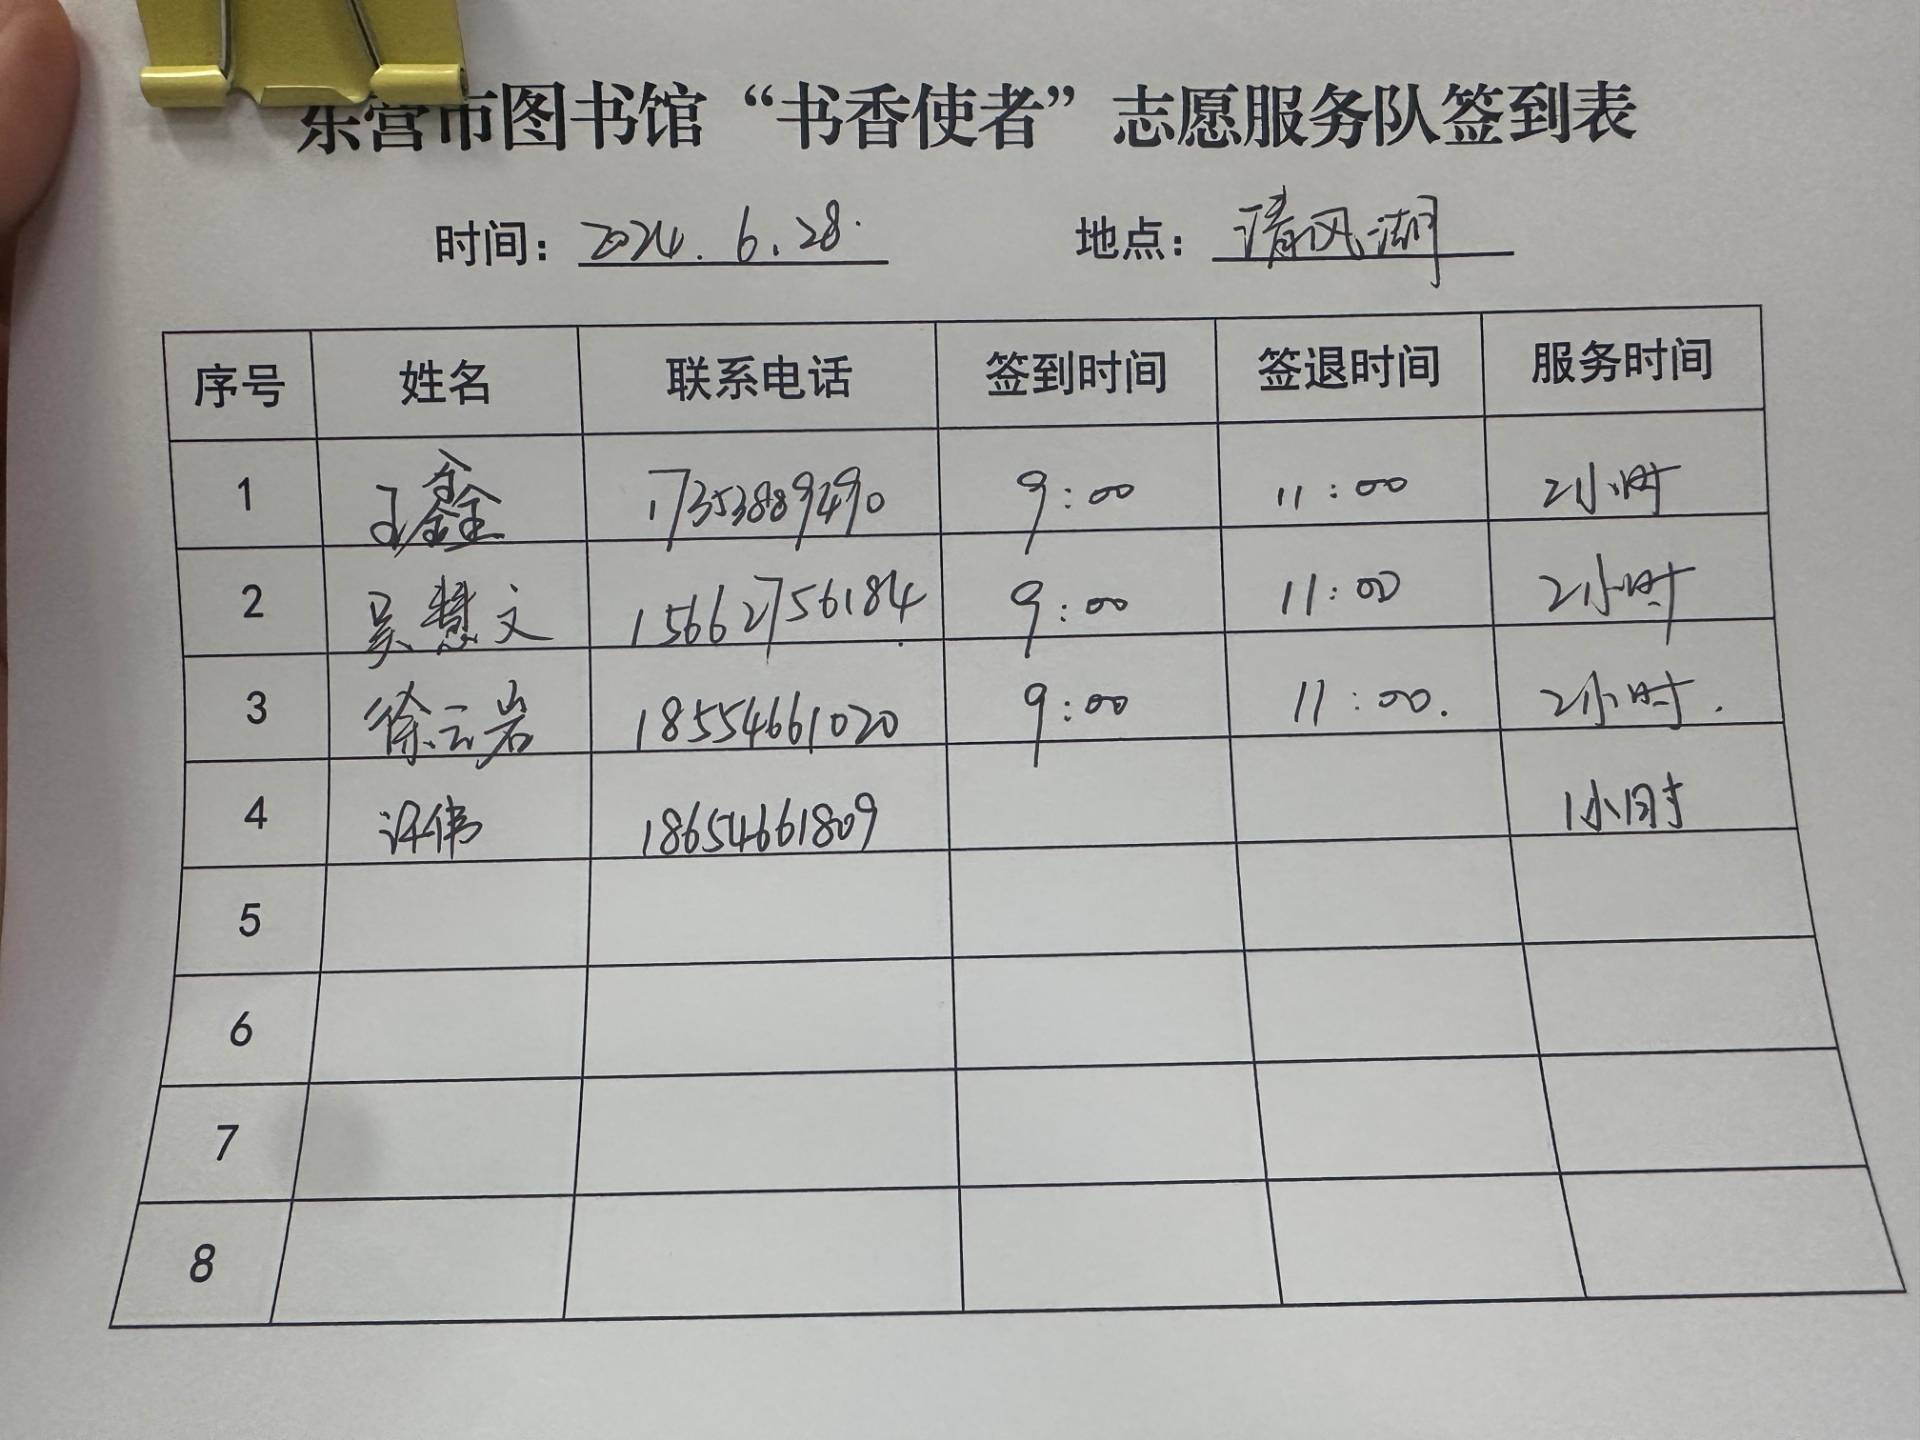 东营市图书馆“书香使者”志愿服务队签到表
时间：2024.6.28. 地点：清风湖
序号 姓名 联系电话 签到时间 签退时间 服务时间
1 王鑫 17353889490 9:00 11:00 2小时
2 吴慧文 15662756184 9:00 11:00 2小时
3 徐云岩 18554661020 9:00 11:00. 2小时.
4 许伟 18654661809 1小时
5
6
7
8